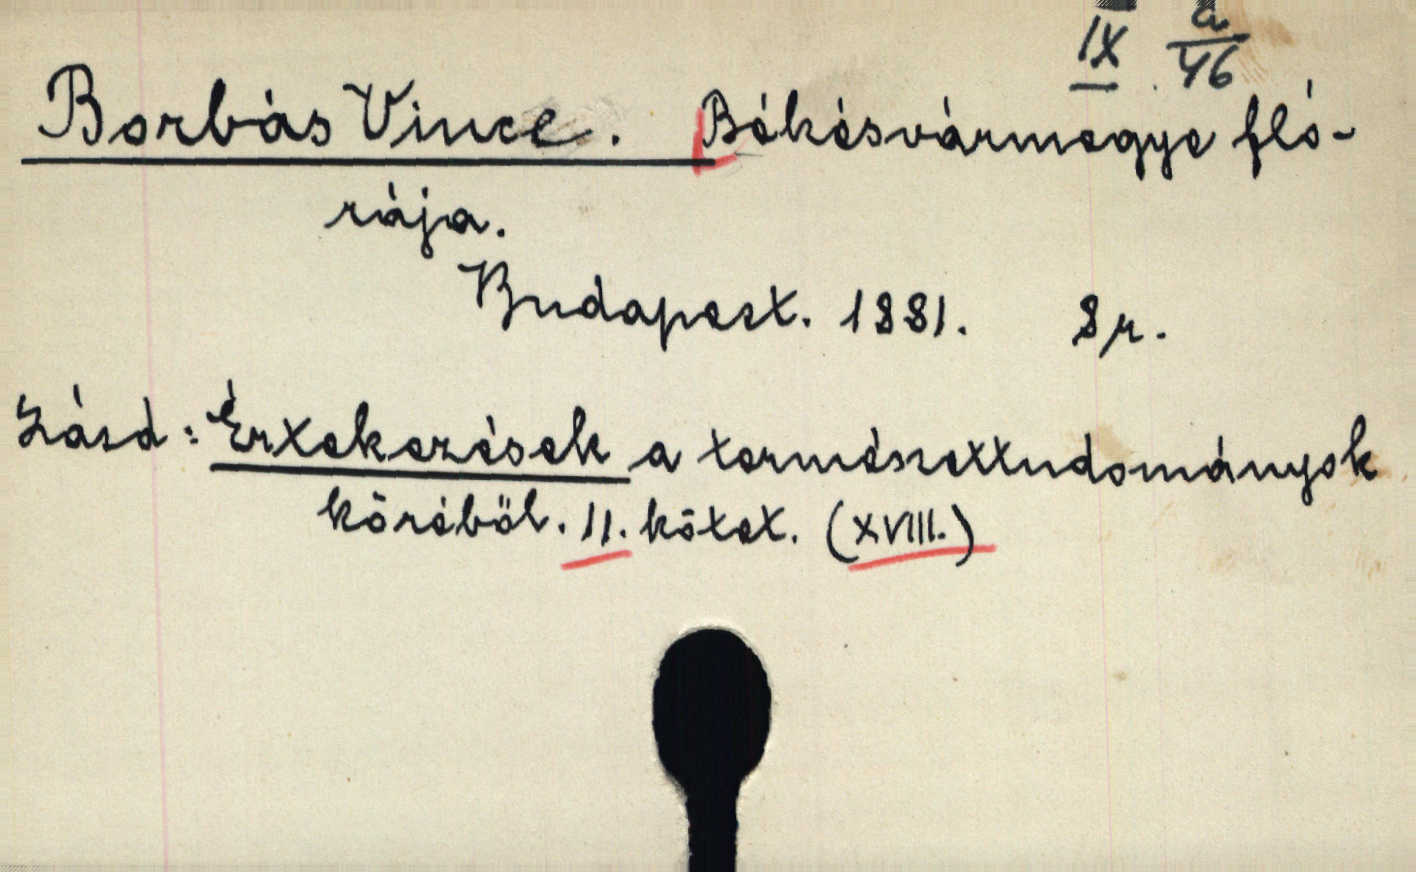 IX a/46
Borbás Vince. Békésvármegye fló-
rája.
Budapest. 1881. 8r.
Lásd: Értekezések a természettudományok
köréből. II. kötet. (XVIII.)